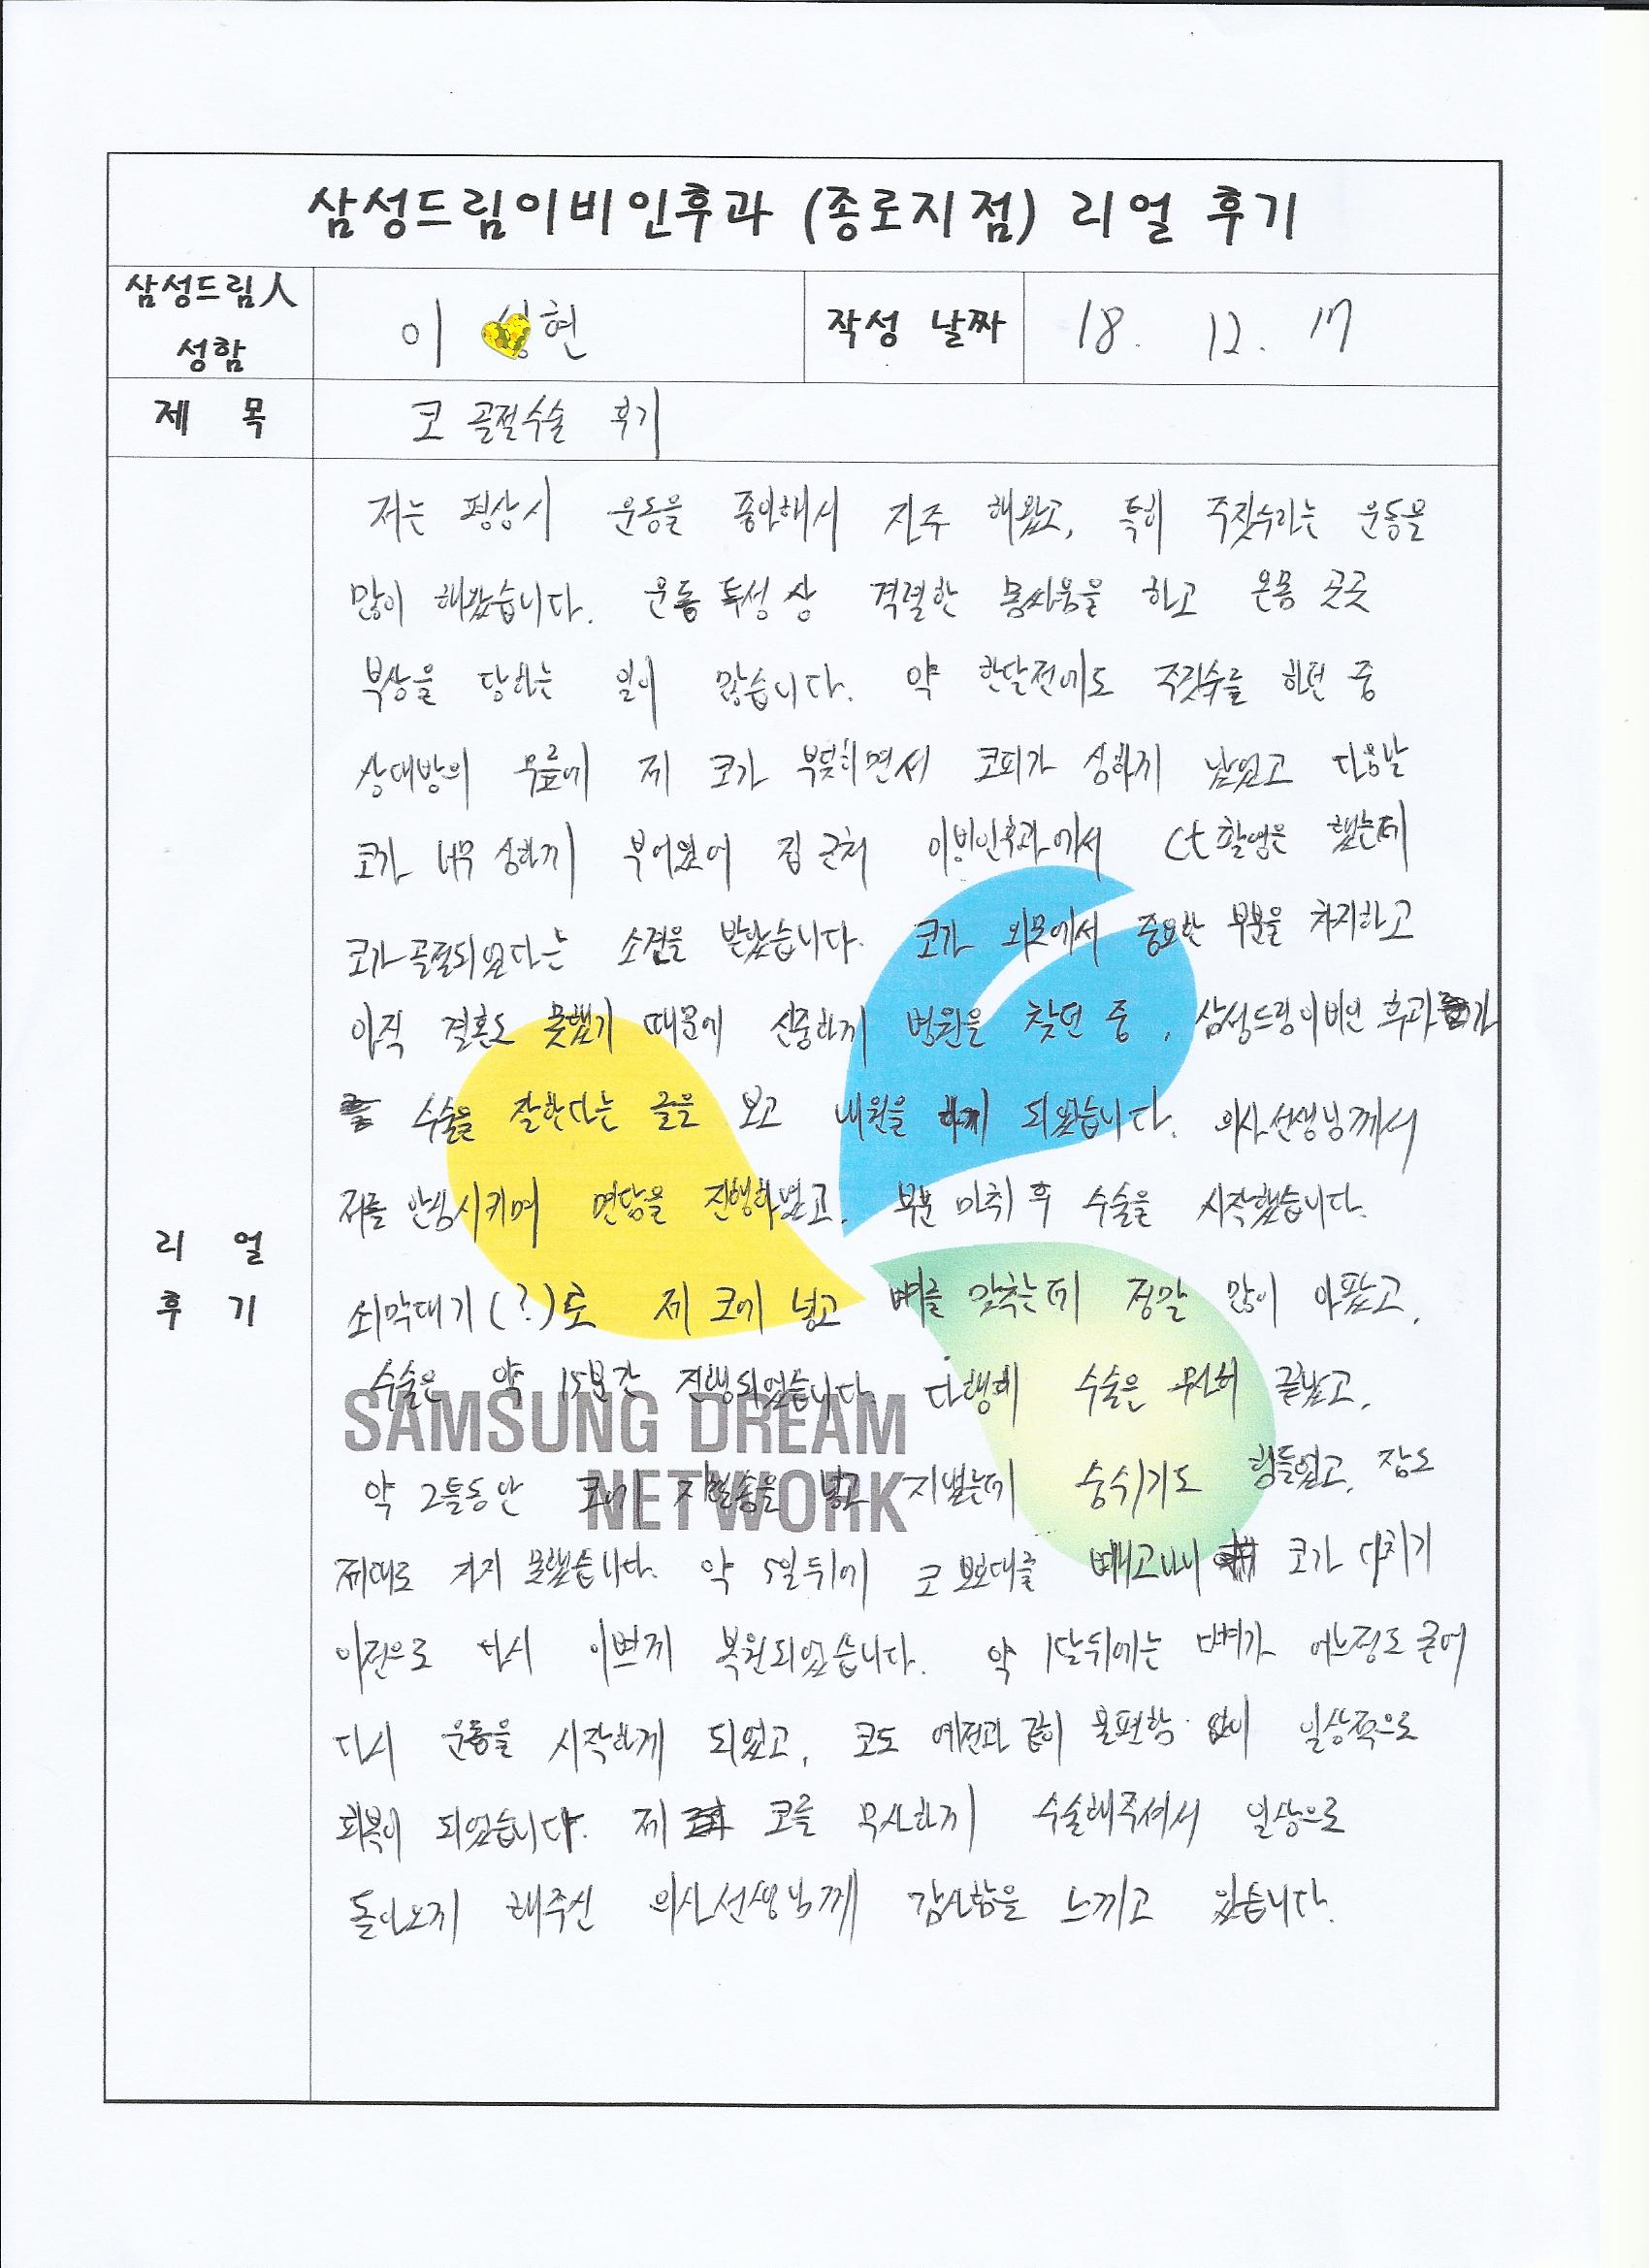 삼성드림이비인후과 (종로지점) 리얼 후기
삼성드림人
성함
이 현
작성 날짜
18. 12. 17
제 목
코 골절수술 후기
리 얼
후 기
저는 평상시 운동을 좋아해서 자주 해왔고, 특히 주짓수라는 운동을
많이 해왔습니다. 운동 특성 상 격렬한 몸싸움을 하고 온몸 곳곳
부상을 당하는 일이 많습니다. 약 한달전에도 주짓수를 하던 중
상대방의 무릎에 제 코가 부딪히면서 코피가 심하게 났었고 다음날
코가 너무 심하게 부어있어 집 근처 이비인후과에서 Ct촬영은 했는데
코가 골절되었다는 소견을 받았습니다. 코가 외모에서 중요한 부분을 차지하고
아직 결혼도 못했기 때문에 신중하게 병원을 찾던 중, 삼성드림이비인후과가
수술을 잘한다는 글을 보고 내원을 하게 되었습니다. 의사선생님께서
저를 안심시키며 면담을 진행하셨고, 부분 마취 후 수술을 시작했습니다.
쇠막대기(?)로 제 코에 넣고 뼈를 맞추는데 정말 많이 아팠고,
수술은 약 15분간 진행되었습니다. 다행히 수술은 무사히 끝났고,
약 2틀동안 코에 지혈솜을 넣고 지냈는데 숨쉬기도 힘들었고, 잠도
제대로 자지 못했습니다. 약 5일뒤에 코 보호대를 빼고나니 코가 다치기
이전으로 다시 이쁘게 복원되었습니다. 약 1달뒤에는 뼈가 어느정도 굳어
다시 운동을 시작하게 되었고, 코도 예전과 같이 불편함 없이 일상적으로
회복이 되었습니다. 제 코를 무사하게 수술해주셔서 일상으로
돌아오게 해주신 의사선생님께 감사함을 느끼고 있습니다.
SAMSUNG DREAM
NETWORK